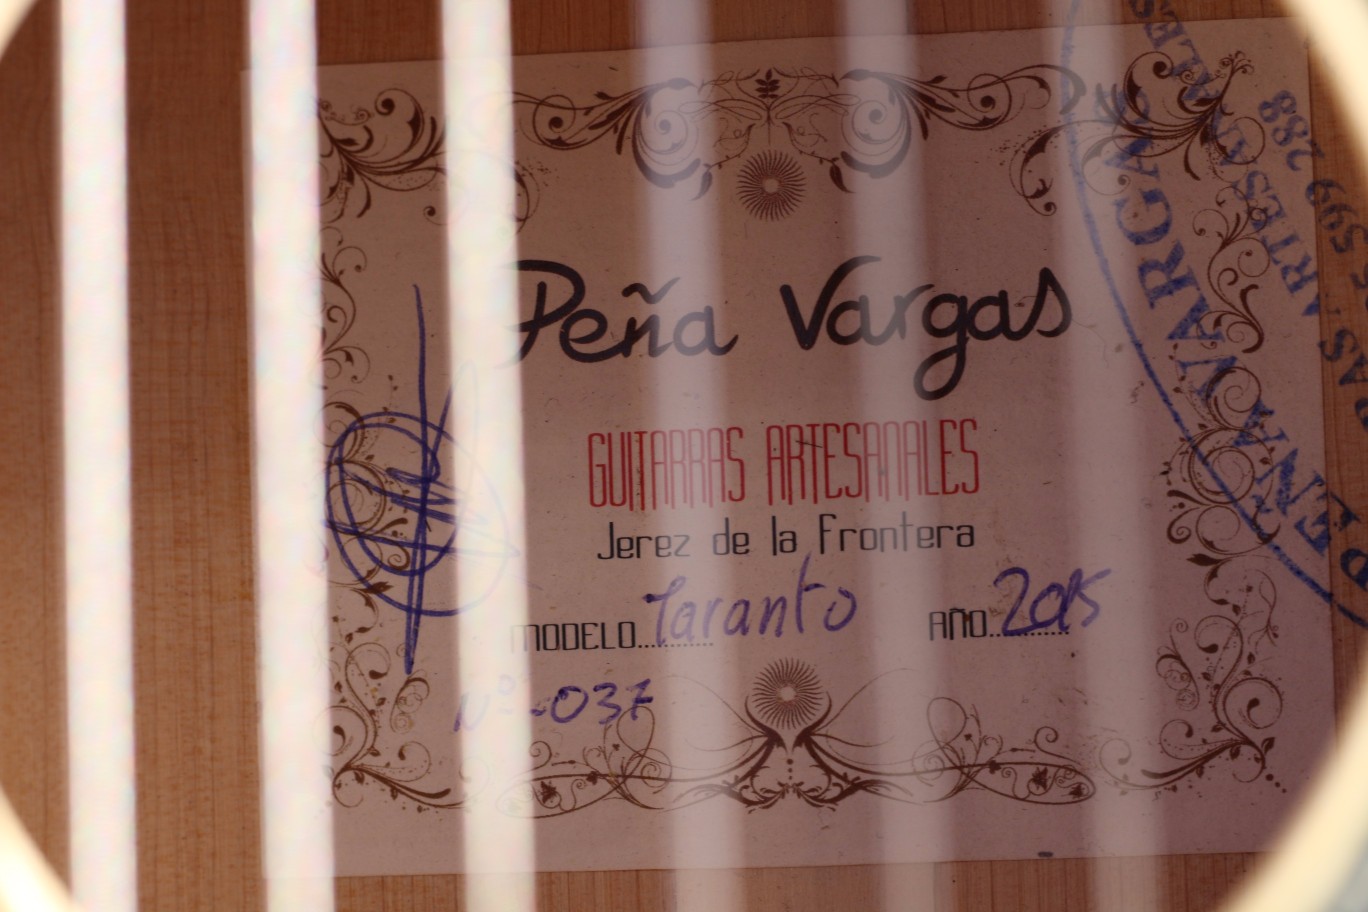 Peña Vargas
GUITARRAS ARTESANALES
Jerez de la Frontera
MODELO............ Taranto AÑO............ 2015
Nº-037
PEÑA VARGAS
599 288